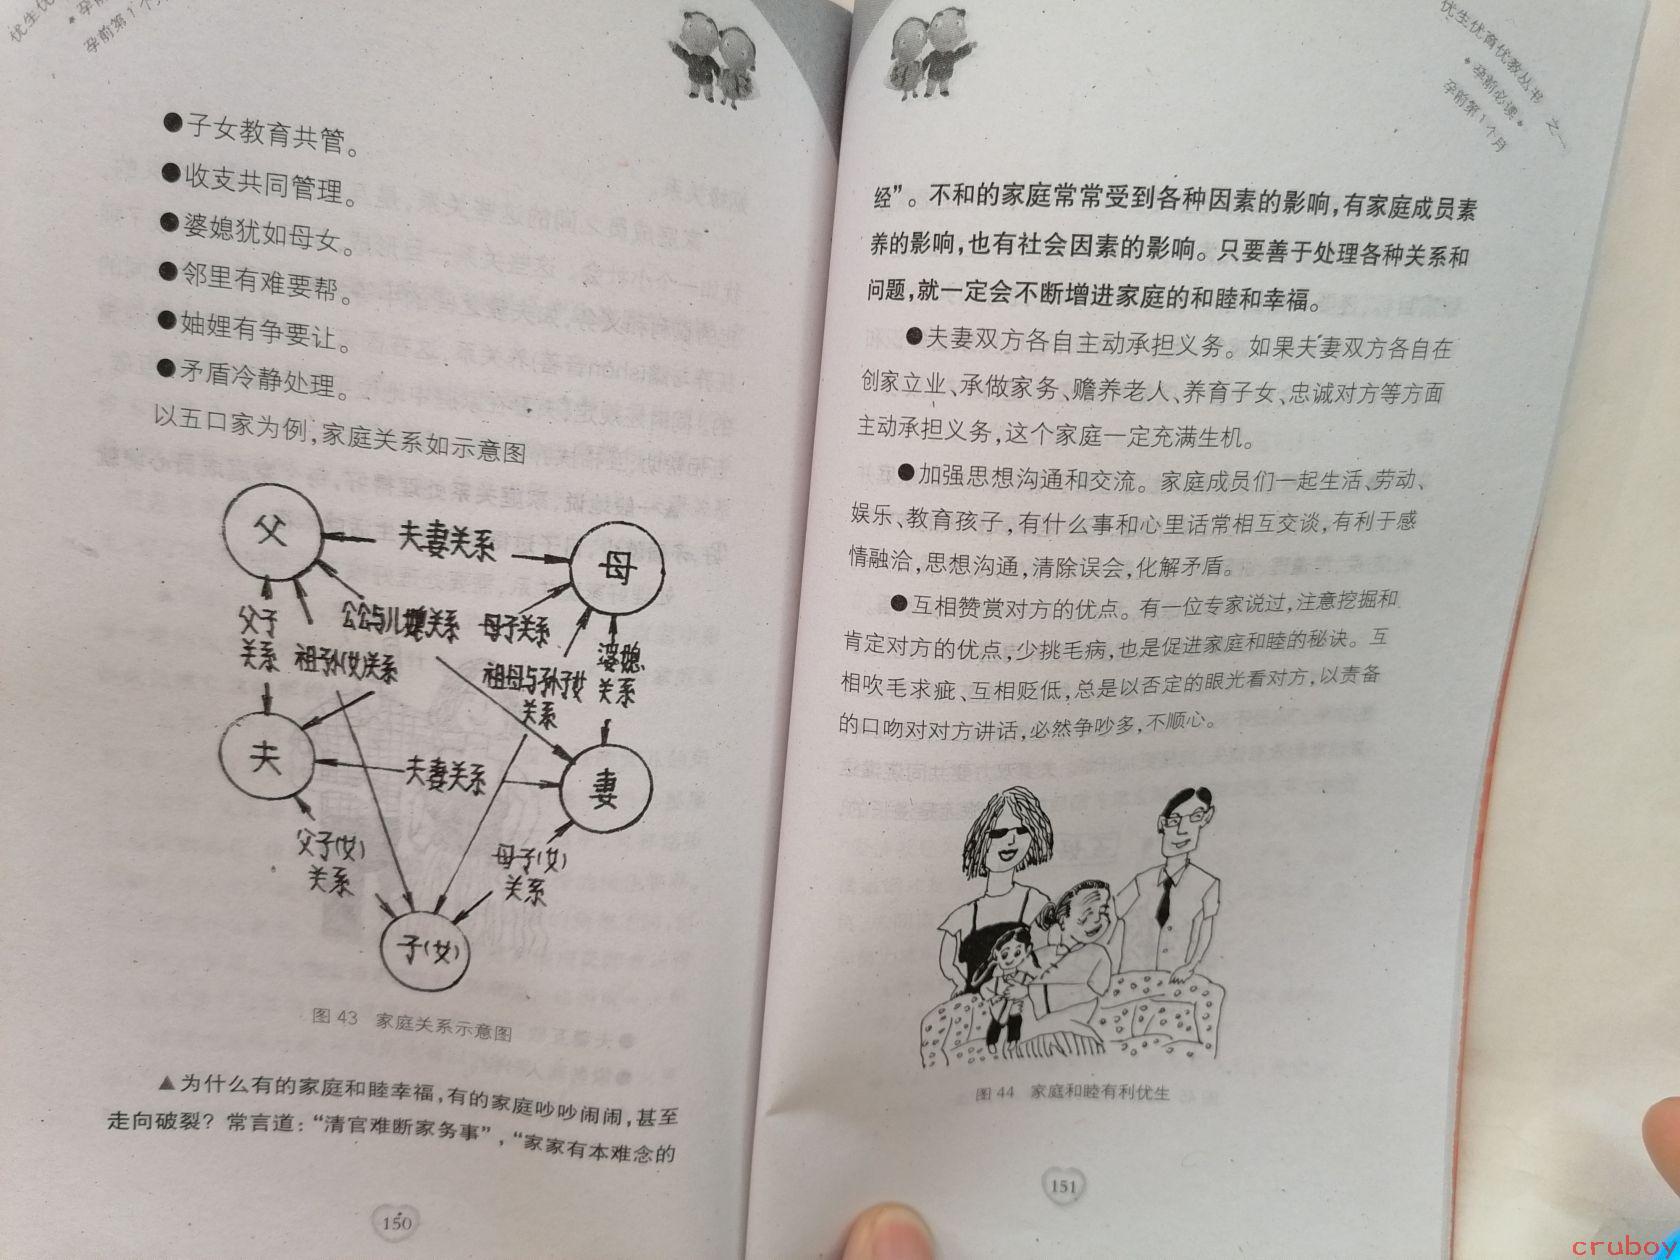 孕前第1个月
●子女教育共管。
●收支共同管理。
●婆媳犹如母女。
●邻里有难要帮。
●妯娌有争要让。
●矛盾冷静处理。
以五口家为例,家庭关系如示意图
父
夫妻关系
母
父子
关系
公公与儿媳关系
母子关系
祖孙(女)关系
祖母与孙子女
关系
婆媳
关系
夫
夫妻关系
妻
父子(女)
关系
母子(女)
关系
子(女)
图 43 家庭关系示意图
▲为什么有的家庭和睦幸福,有的家庭吵吵闹闹,甚至
走向破裂？常言道：“清官难断家务事”，“家家有本难念的
150
优生优育优教丛书 之一
●孕前必读●
孕前第1个月
经”。不和的家庭常常受到各种因素的影响,有家庭成员素
养的影响,也有社会因素的影响。只要善于处理各种关系和
问题,就一定会不断增进家庭的和睦和幸福。
●夫妻双方各自主动承担义务。如果夫妻双方各自在
创家立业、承做家务、赡养老人、养育子女、忠诚对方等方面
主动承担义务,这个家庭一定充满生机。
●加强思想沟通和交流。家庭成员们一起生活、劳动、
娱乐、教育孩子,有什么事和心里话常相互交谈,有利于感
情融洽,思想沟通,清除误会,化解矛盾。
●互相赞赏对方的优点。有一位专家说过,注意挖掘和
肯定对方的优点,少挑毛病,也是促进家庭和睦的秘诀。互
相吹毛求疵、互相贬低,总是以否定的眼光看对方,以责备
的口吻对对方讲话,必然争吵多,不顺心。
图 44 家庭和睦有利优生
151
cruboy